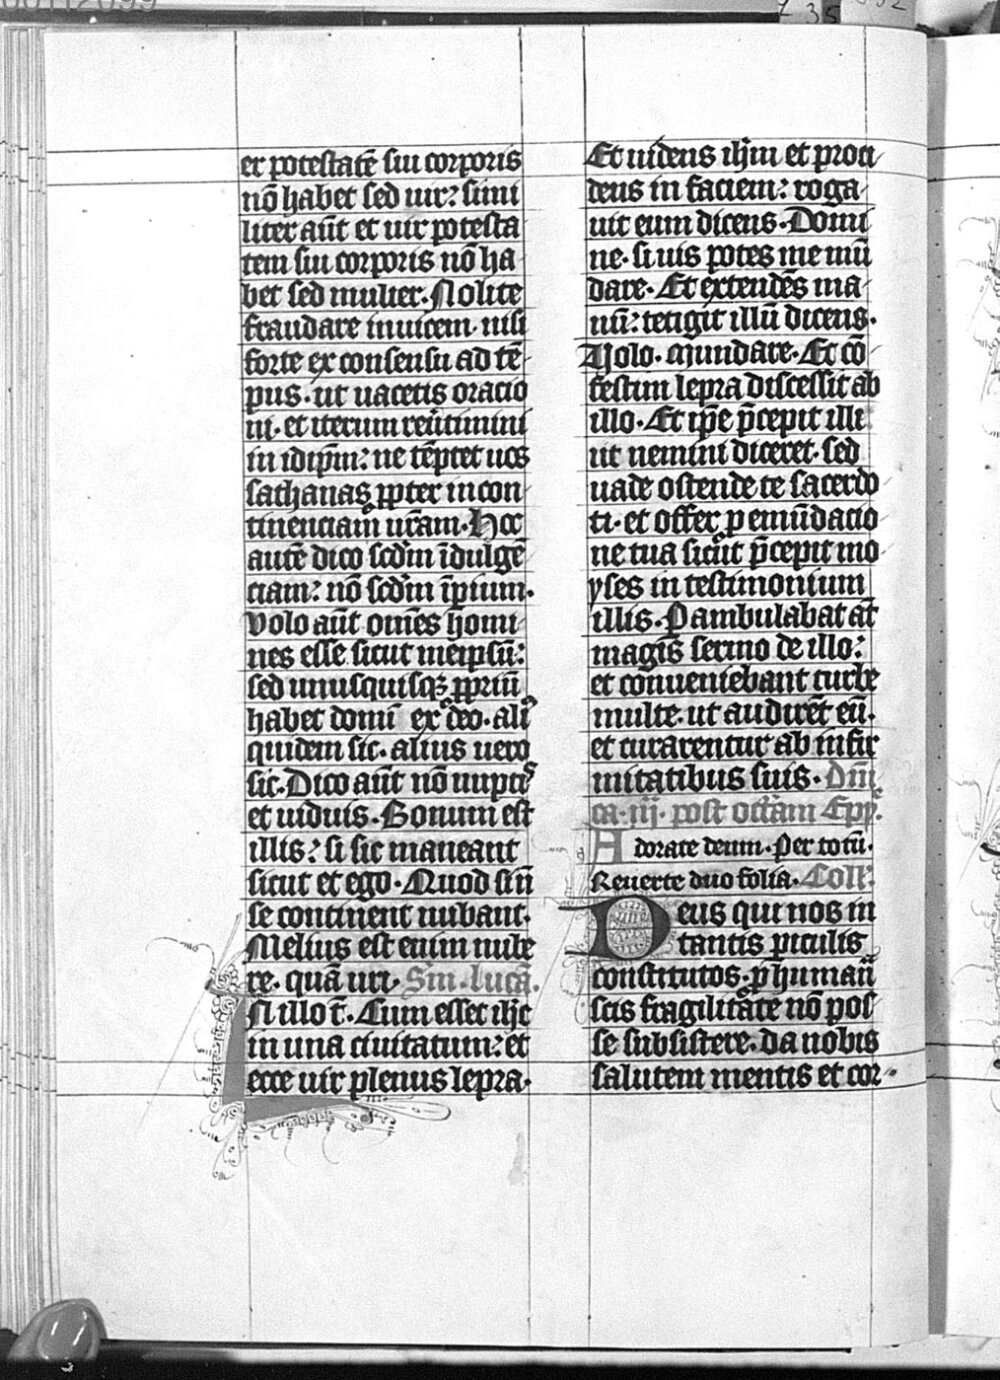 er potestatē sui corporis
nō habet sed uir: simi
liter aūt et uir potesta
tem sui corporis nō ha
bet sed mulier. Nolite
fraudare inuicem. nisi
forte ex consensu ad tē
pus. ut uacetis oratio
ni. et iterum reūtimini
in idip̄m: ne tēptet uos
sathanas ꝓpter incon
tinenciam ur̄am. Hoc
autē dico scd̄m īdulgē
ciam: nō scd̄m īpium.
Volo aūt om̄es homi
nes esse sicut meip̄sū:
sed unusquisqꝫ ꝓpriū
habet donū ex deo. aliꝰ
quidem sic. alius uero
sic. Dico aūt nō nuptis
et uiduis. Bonum est
illis: si sic maneant
sicut et ego. Quod si n̄
se continent nubant.
Melius est enim nube
re. quā uri. Sm̄. lucā.
N illo t̄. Cum esset ih̄c
in una ciuitatum: et
ecce uir plenus lepra.
Et uidens ih̄m et proci
dens in faciem: roga
uit eum dicens. Domi
ne. si uis potes me mū
dare. Et extendēs ma
nū: tetigit illū dicens.
Uolo. Mundare. Et cō
festim lepra discessit ab
illo. Et ip̄e p̄cepit illi
ut nemini diceret. sed
uade ostende te sacerdo
ti. et offer ꝓ emūdatio
ne tua sicut p̄cepit mo
yses in testimonium
illis. Pambulabat at̄
magis sermo de illo:
et conueniebant turbe
multe. ut audirēt eū.
et curarentur ab infir
mitatibus suis. Dn̄i
ca. iij. post octām Epyᵉ.
A dorate deum. Per totū.
Reuerte duo folia. Coll'.
Deus qui nos in
tantis piculis
constitutos. p̄ humanā
scis fragilitate nō pos
se subsistere. da nobis
salutem mentis et cor